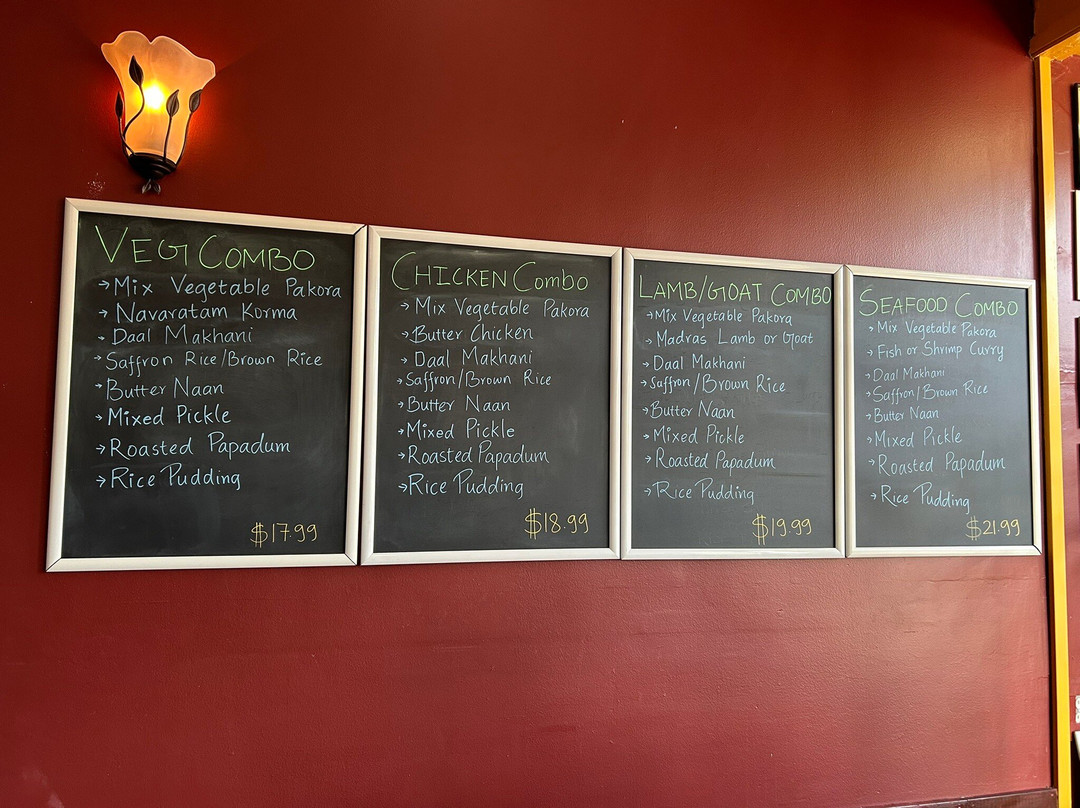 VEG COMBO
→Mix Vegetable Pakora
→Navaratam Korma
→Daal Makhani
→Saffron Rice/Brown Rice
→Butter Naan
→Mixed Pickle
→Roasted Papadum
→Rice Pudding
$17.99
CHICKEN Combo
→Mix Vegetable Pakora
→Butter Chicken
→Daal Makhani
→Saffron/Brown Rice
→Butter Naan
→Mixed Pickle
→Roasted Papadum
→Rice Pudding
$18.99
LAMB/GOAT COMBO
→Mix Vegetable Pakora
→Madras Lamb or Goat
→Daal Makhani
→Saffron/Brown Rice
→Butter Naan
→Mixed Pickle
→Roasted Papadum
→Rice Pudding
$19.99
SEAFOOD COMBO
→Mix Vegetable Pakora
→Fish or Shrimp Curry
→Daal Makhani
→Saffron/Brown Rice
→Butter Naan
→Mixed Pickle
→Roasted Papadum
→Rice Pudding
$21.99